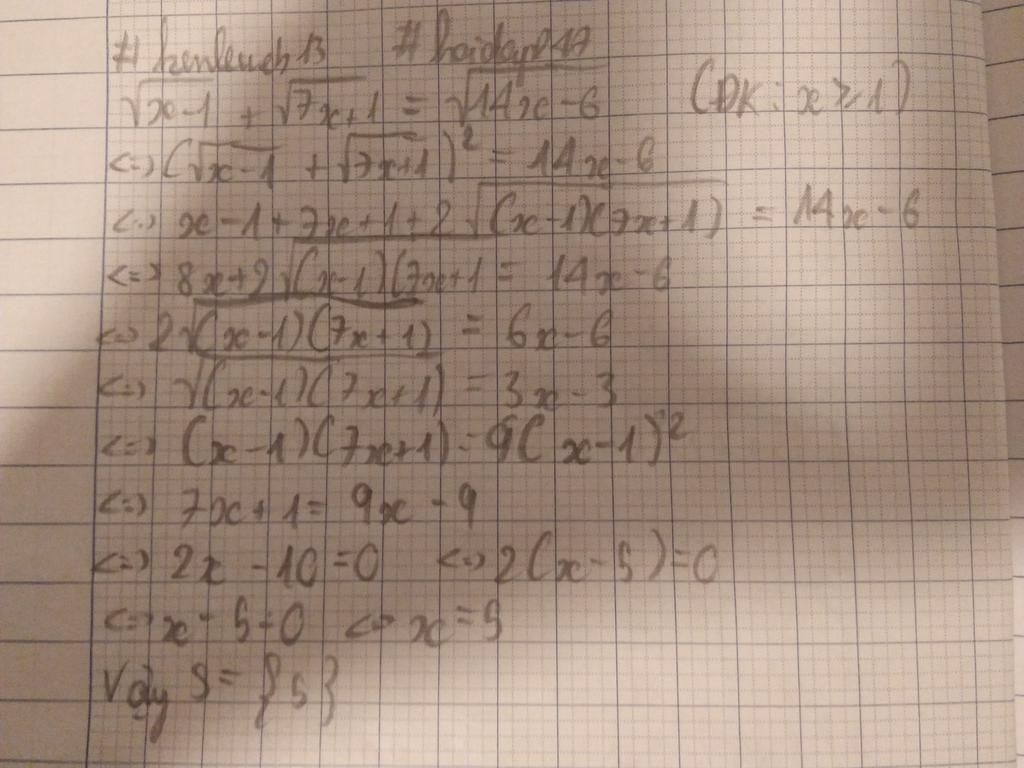 #kenleuch13 #hoidap247
√x-1 + √7x+1 = √14x-6 (ĐK: x ≥ 1)
<=> (√x-1 + √7x+1)² = 14x-6
<=> x-1+7x+1+2√(x-1)(7x+1) = 14x-6
<=> 8x+2√(x-1)(7x+1 = 14x-6
<=> 2√(x-1)(7x+1) = 6x-6
<=> √(x-1)(7x+1) = 3x-3
<=> (x-1)(7x+1) = 9(x-1)²
<=> 7x+1 = 9x-9
<=> 2x-10=0 <=> 2(x-5)=0
<=> x-5=0 <=> x=5
Vậy S = {5}